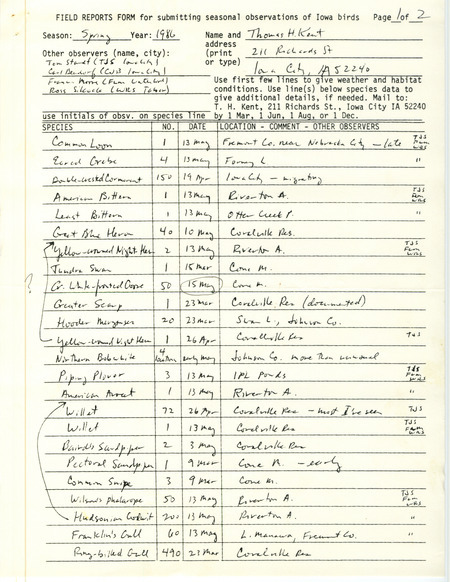 FIELD REPORTS FORM for submitting seasonal observations of Iowa birds Page 1 of 2
Season: Spring Year: 1986 Name and Thomas H. Kent
address 211 Richards St
Other observers (name, city): (print
Tom Staudt (TJS Iowa City) or type) Iowa City, IA 52240
Carl Bendorf (CJB Iowa City)
Fran Moore (FLM Waterloo) Use first few lines to give weather and habitat
Ross Silcock (WRS Tabor) conditions. Use line(s) below species data to
give additional details, if needed. Mail to:
T. H. Kent, 211 Richards St., Iowa City IA 52240
use initials of obsv. on species line by 1 Mar, 1 Jun, 1 Aug, or 1 Dec.
SPECIES NO. DATE LOCATION - COMMENT - OTHER OBSERVERS
Common Loon 1 13 May Fremont Co. near Nebraska City - late TJS FLM WRS
Eared Grebe 4 13 May Forney L. "
Double-crested Cormorant 150 19 Apr Iowa City - migrating
American Bittern 1 13 May Riverton A. TJS FLM WRS
Least Bittern 1 13 May Otter Creek P. "
Great Blue Heron 40 10 May Coralville Res.
Yellow-crowned Night Heron 2 13 May Riverton A. TJS FLM WRS
Tundra Swan 1 15 Mar Cone M.
? Gr. White-fronted Goose 50 15 May Cone M.
Greater Scaup 1 23 Mar Coralville Res (documented)
Hooded Merganser 20 23 Mar Swan L., Johnson Co.
Yellow-crowned Night Heron 1 26 Apr Coralville Res TJS
Northern Bobwhite 4 early May Johnson Co. more than usual
Piping Plover 3 13 May IPL Ponds TJS FLM WRS
American Avocet 1 13 May Riverton A. "
Willet 72 26 Apr Coralville Res - most I've seen TJS
Willet 1 13 May Coralville Res TJS FLM WRS
Baird's Sandpiper 2 3 May Coralville Res
Pectoral Sandpiper 1 9 Mar Cone M. - early
Common Snipe 3 9 Mar Cone M.
Wilson's Phalarope 50 13 May Riverton A. TJS FLM WRS
Hudsonian Godwit 200 13 May Riverton A. "
Franklin's Gull 60 13 May L. Manawa, Fremont Co. "
Ring-billed Gull 490 23 Mar Coralville Res